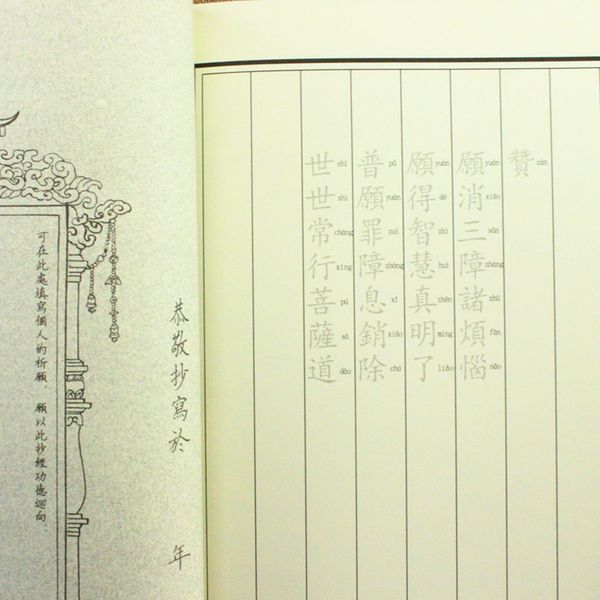 贊 zàn
願 yuàn 消 xiāo 三 sān 障 zhàng 諸 zhū 煩 fán 惱 nǎo
願 yuàn 得 dé 智 zhì 慧 huì 真 zhēn 明 míng 了 liǎo
普 pǔ 願 yuàn 罪 zuì 障 zhàng 息 xī 銷 xiāo 除 chú
世 shì 世 shì 常 cháng 行 xíng 菩 pú 薩 sà 道 dào
恭敬抄寫於 年
可在此處填寫個人的祈願，願以此抄經功德迴向。